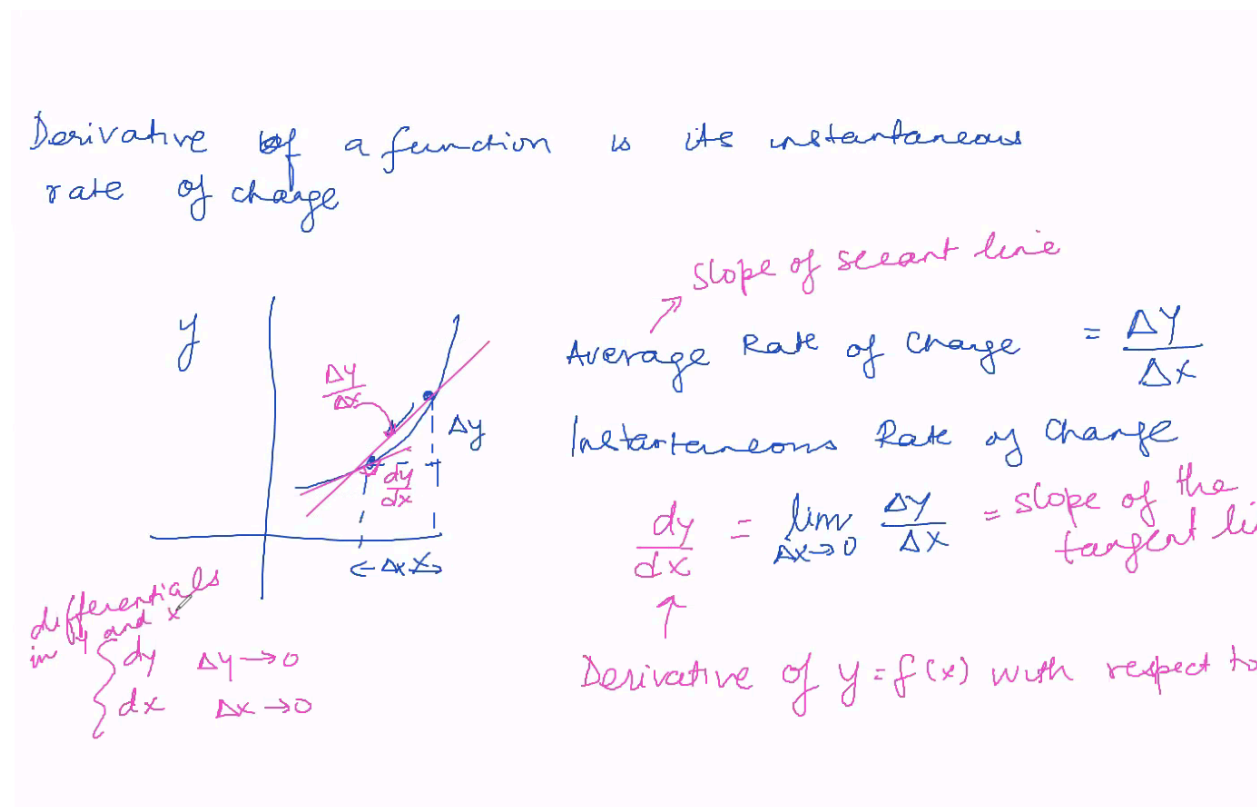 Derivative of a function is its instantaneous
rate of change
Slope of secant line
Average Rate of Change = ΔY/ΔX
Instantaneous Rate of Change
dy/dx = lim ΔX→0 ΔY/ΔX = slope of the
tangent li
Derivative of y = f(x) with respect to
y
Δy/Δx
Δy
dy/dx
Δx
differentials
in y and x
dy Δy→0
dx Δx→0